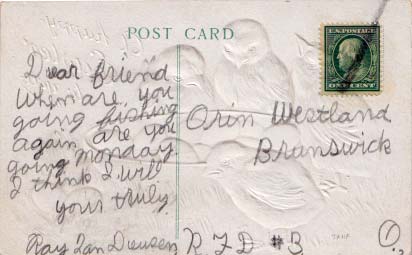 POST CARD
U.S. POSTAGE
ONE CENT
Dear friend
When are you
going fishing
again are you
going monday
I think I will
yours truly.
Ray Van Deusen
Orin Westland
Brunswick
R. F D #3
O.